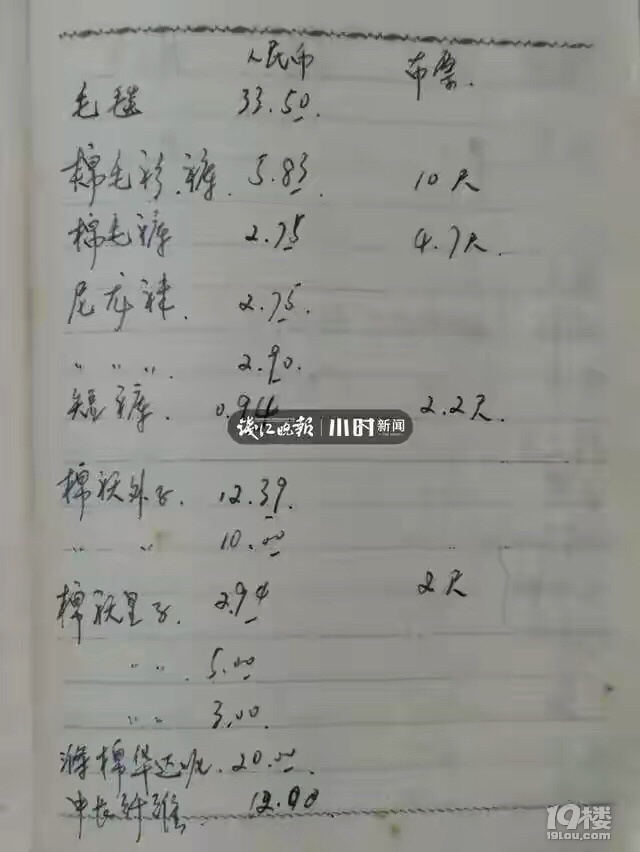 人民币 布票.
毛毯 33.50.
棉毛衫.裤. 5.83 10尺
棉毛裤 2.75 4.7尺
尼龙袜. 2.75.
〃 〃 〃. 2.90.
短裤. 0.94 2.2尺.
钱江晚报 小时新闻
棉袄外子. 12.39.
〃 〃 10.00
棉袄里子. 2.94 2尺
〃 〃. 5.00
〃 〃 3.00.
涤棉华达呢. 20.00.
中长纤维. 12.00
19楼
19lou.com